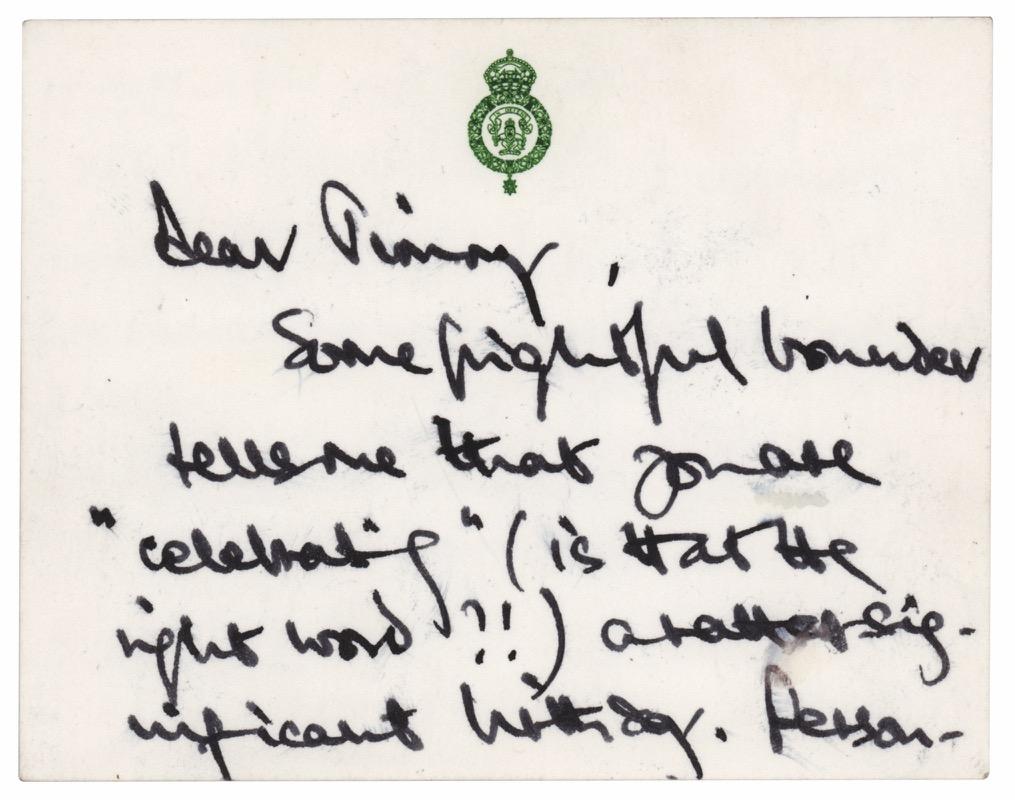 Dear Timmy,
Some frightful bounder
tells me that you are
"celebrating" (is that the
right word ?!!) a rather sig-
nificant birthday. Person-